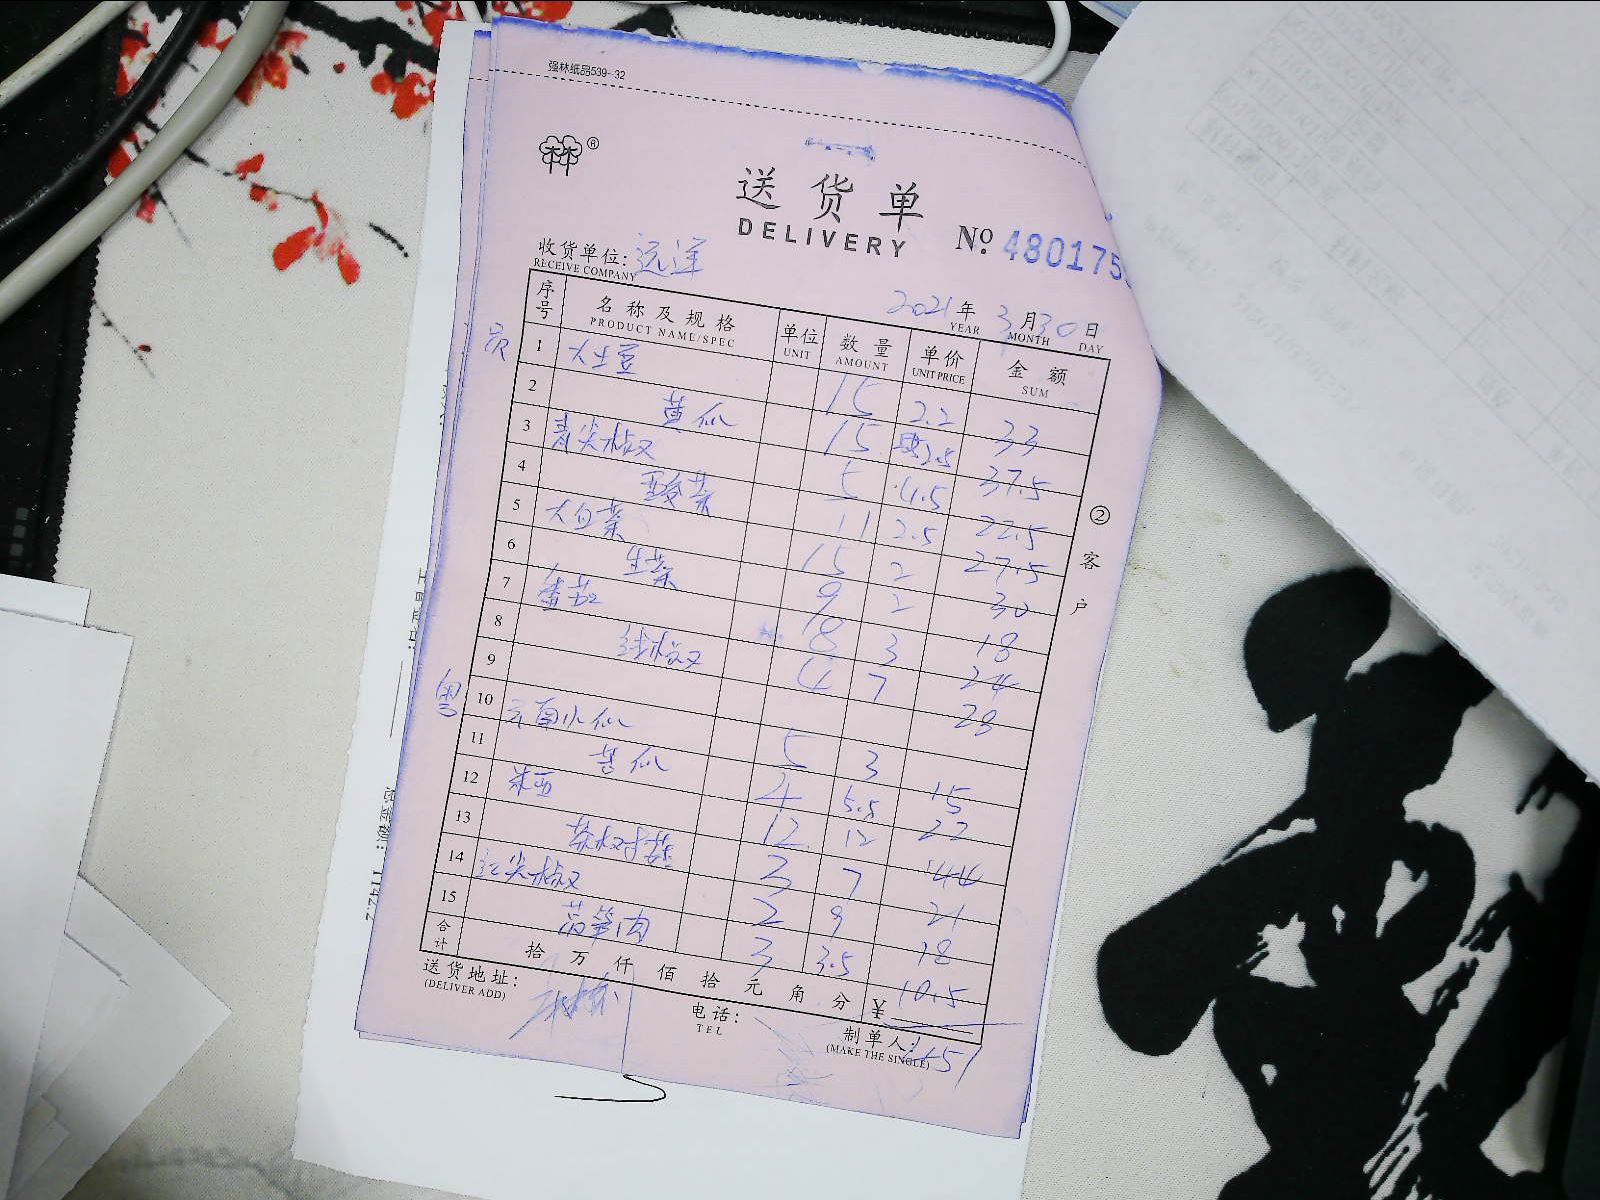 强林纸品539--32
®
送货单
DELIVERY
№ 480175
收货单位: 远洋
RECEIVE COMPANY
2021年 3月 30日
YEAR MONTH DAY
序号 名称及规格 单位 数量 单价 金额
PRODUCT NAME/SPEC UNIT AMOUNT UNIT PRICE SUM
1 大土豆 15 2.2 33
2 黄瓜 15 2.5 37.5
3 青尖椒 5 4.5 22.5
4 酸菜 11 2.5 27.5
5 大白菜 15 2 30
6 生菜 9 2 18
7 番茄 8 3 24
8 线椒 4 7 28
9
粤
10 小瓜 5 3 15
11 苦瓜 4 5.5 22
12 12 12 144
13 3 7 21
14 红尖椒 2 9 18
15 莴笋肉 3 3.5 10.5
合计 拾 万 仟 佰 拾 元 角 分 ¥
送货地址:
(DELIVER ADD)
电话:
TEL
制单人:
(MAKE THE SINGLE)
451
②客户
1142.2